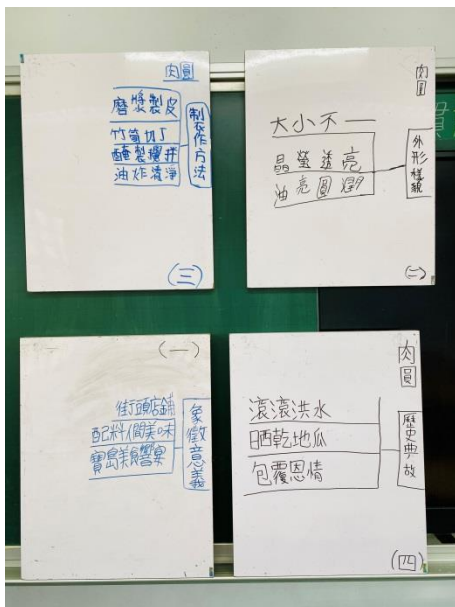 肉圓
磨漿製皮
竹筍切丁
醃製攪拌
油炸瀝淨
製作方法
(三)
肉圓
大小不一
晶瑩透亮
油亮圓潤
外形樣貌
(二)
(一)
街頭店鋪
配料人間美味
寶島美食饗宴
象徵意義
肉圓
滾滾洪水
晒乾地瓜
包覆恩情
歷史典故
(四)